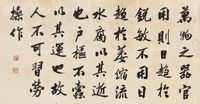 萬物之器官
用則日趨於
銳敏不用日
趨於萎縮流
水不腐以其
也戶樞不蠹
以其運也故
人不可習勞
操作